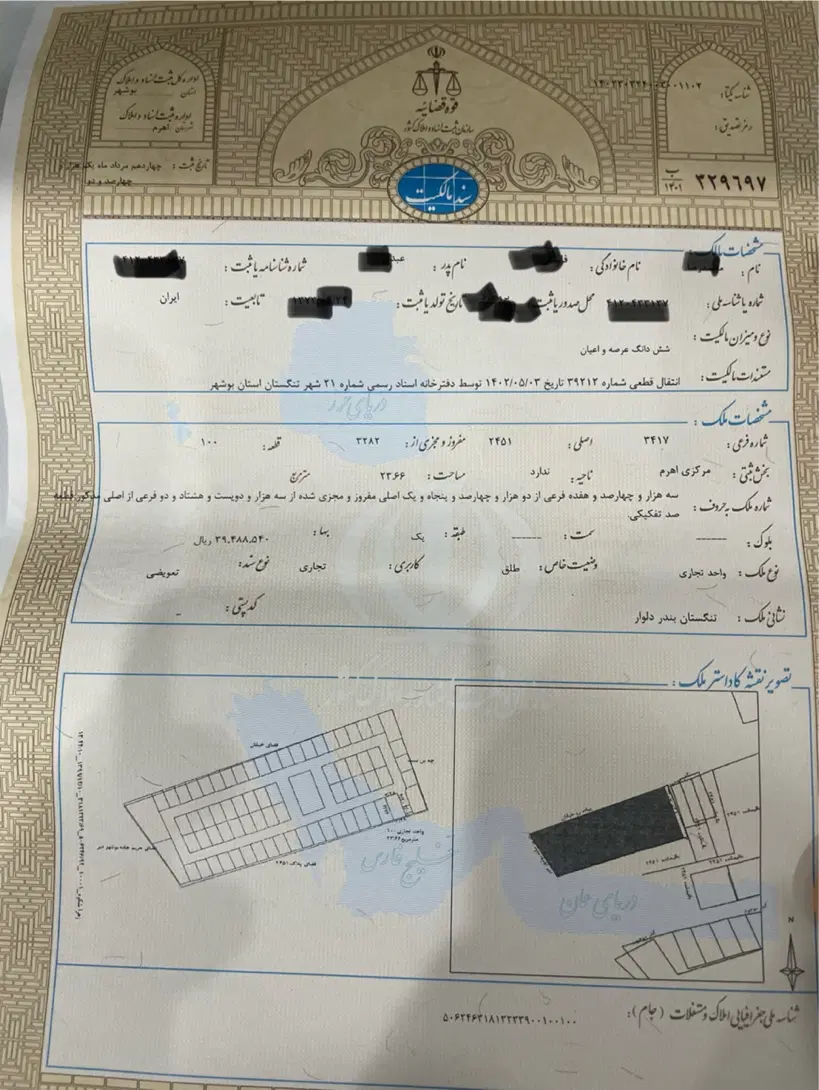 قوه قضائیه
سازمان ثبت اسناد و املاک کشور
اداره کل ثبت اسناد و املاک
استان بوشهر
اداره ثبت اسناد و املاک
شهرستان اهرم
تاریخ ثبت : چهاردهم مرداد ماه یک هزار و
چهارصد و دو
شناسه یکتا :
رمز تصدیق :
ب
۱۴۰۱
۳۲۹۶۹۷
سند مالکیت
مشخصات مالک :
نام : نام خانوادگی : نام پدر : شماره شناسنامه یا ثبت :
شماره یا شناسه ملی : محل صدور یا ثبت : تاریخ تولد یا ثبت : تابعیت : ایران
نوع و میزان مالکیت : شش دانگ عرصه و اعیان
مستندات مالکیت : انتقال قطعی شماره ۳۹۲۱۲ تاریخ ۱۴۰۲/۰۵/۰۳ توسط دفترخانه اسناد رسمی شماره ۲۱ شهر تنگستان استان بوشهر
مشخصات ملک :
شماره فرعی : ۳۴۱۷ اصلی : ۲۴۵۱ مفروز و مجزی از : ۳۲۸۲ قطعه : ۱۰۰
بخش ثبتی : مرکزی اهرم ناحیه : ندارد مساحت : ۲۳.۶۶ مترمربع
شماره ملک به حروف : سه هزار و چهارصد و هفده فرعی از دو هزار و چهارصد و پنجاه و یک اصلی مفروز و مجزی شده از سه هزار و دویست و هشتاد و دو فرعی از اصلی مذکور، قطعه
صد تفکیکی.
بلوک : ------ سمت : ------ طبقه : یک بها : ۳۹.۴۸۸.۵۴۰ ریال
نوع ملک : واحد تجاری وضعیت خاص : طلق کاربری : تجاری نوع سند : تعویضی
نشانی ملک : تنگستان بندر دلوار کد پستی : -
تصویر نقشه کاداستر ملک :
فضای خیابان
واحد تجاری ۱۰۰
۲۳.۶۶ مترمربع
فضای پلاک ۲۴۵۱
دریای خزر
خلیج فارس
دریای عمان
N
شناسه ملی جغرافیایی املاک و مستغلات (جام) :